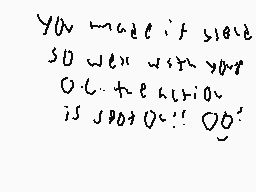 You made it
so well with your
O.C. the action
is spot on!! OO!